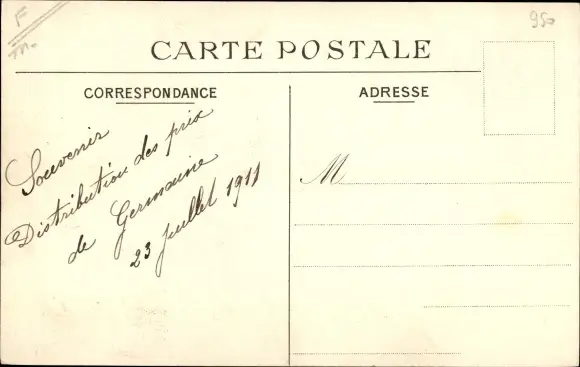 F
m.
950
CARTE POSTALE
CORRESPONDANCE
Souvenir
Distribution des prix
de Germaine
23 juillet 1911
ADRESSE
M